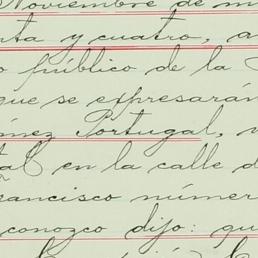 Noviembre de m
nta y cuatro, a
o público de la
que se expresarán
ínez Portugal, v
tal en la calle d
rancisco númer
conozco dijo: qu